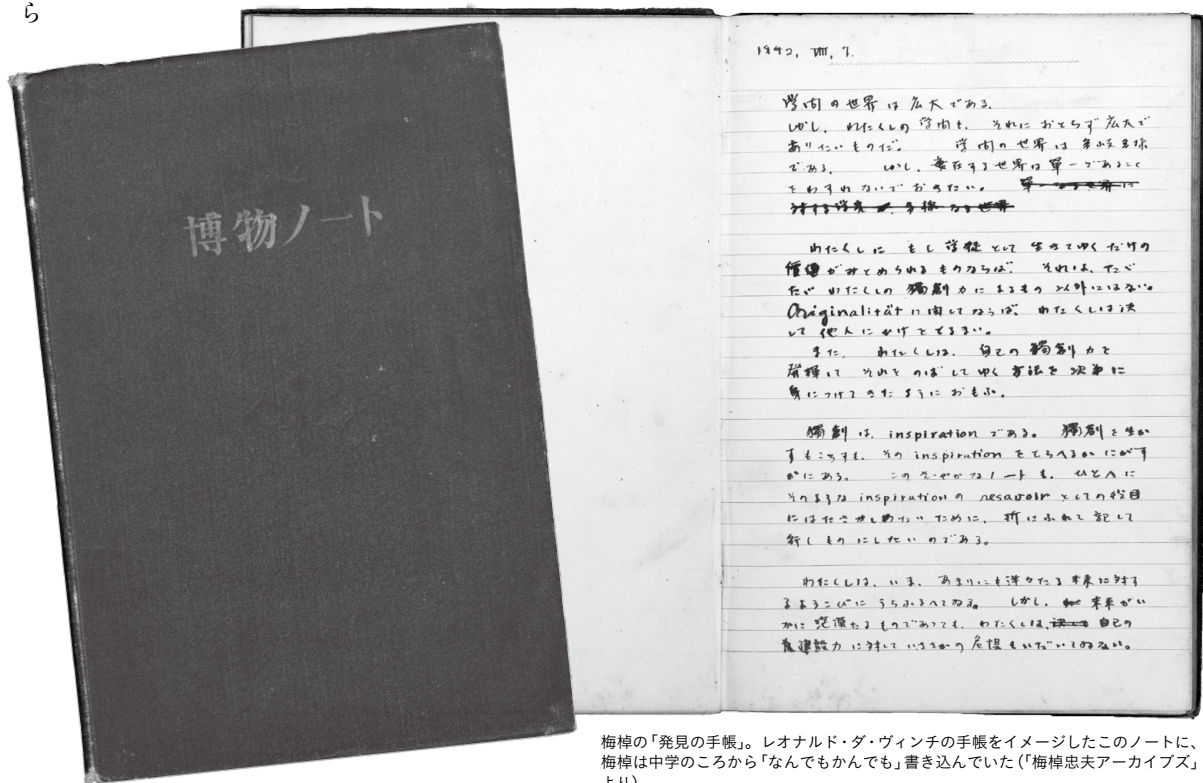 ら
博物ノート
1942, VIII, 7.
学問の世界は広大である。
しかし、わたくしの学問も、それにおとらず広大で
ありたいものだ。 学問の世界は多岐多様
である。 しかし、実在する世界は單一であること
をわすれないでおきたい。 單一なる世界に
対する学究 多様なる世界
わたくしに もし学徒として生きてゆくだけの
價値がみとめられるものならば、それは、たゞ
たゞわたくしの獨創力によるもの以外にはない。
Originalitätに関してならば、わたくしは決
して他人にかけをとるまい。
また、わたくしは、自己の獨創力を
発揮して それをのばしてゆく方法を次第に
身につけてきたようにおもふ。
獨創は、inspirationである。 獨創を生か
すもころすも、その inspiration をとらへるか にがす
かにある。 このさゝやかなノートも、ひとへに
そのような inspiration の resavoir としての役目
にはたさしめたいために、折にふれて記して
行くものにしたいのである。
わたくしは、いま、あまりにも洋々たる未来に対す
るよろこびに うちふるへてゐる。 しかし、未来がい
かに茫漠たるものであっても、わたくしは、自己の
建設力に対していさゝかの危惧もいだいてゐない。
梅棹の「発見の手帳」。レオナルド・ダ・ヴィンチの手帳をイメージしたこのノートに、
梅棹は中学のころから「なんでもかんでも」書き込んでいた(「梅棹忠夫アーカイブズ」
より)